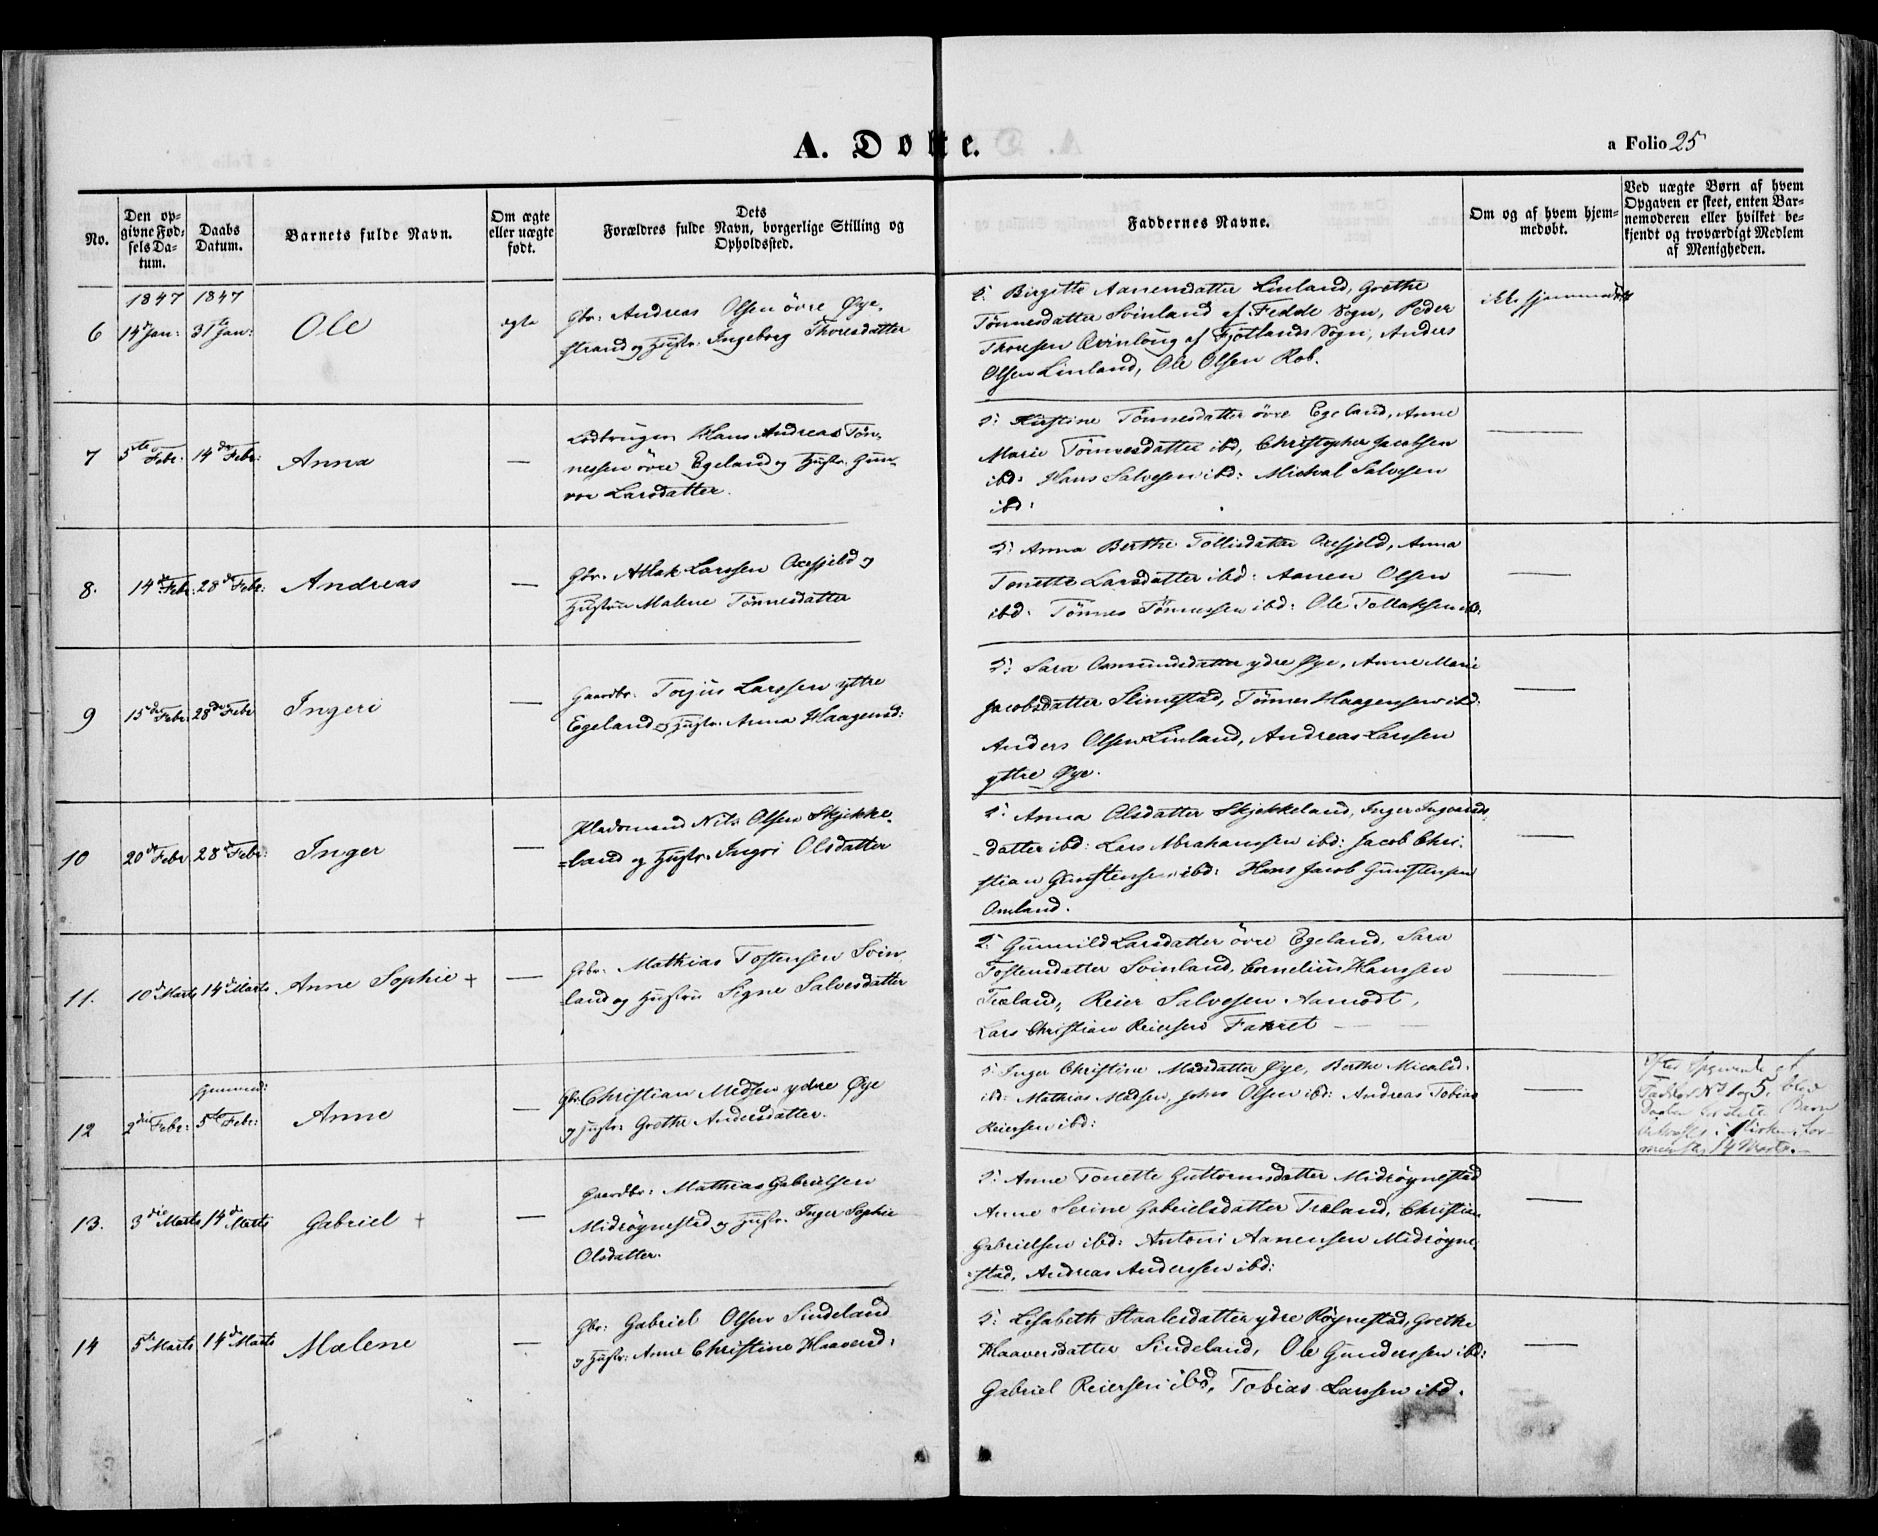 A. Døbte.
a Folio 25
No.
Den opgivne Fødsels Datum.
Daabs Datum.
Barnets fulde Navn.
Om ægte eller uægte født.
Dets Forældres fulde Navn, borgerlige Stilling og Opholdssted.
Faddernes Navne.
Om og af hvem hjemmedøbt.
Ved uægte Børn af hvem Opgaven er skeet, enten Barnemoderen eller hvilket bekjendt og troværdigt Medlem af Menigheden.
1847 1847
6 14 Jan: 31te Jan: Ole ægte
Gbr: Andreas Olsen övre Øye,
strand og Hustr: Ingeborg Thoresdatter
5: Birgitte Aanensdatter Linland, Grethe
Tönnesdatter Svinland af Fedde Sogn, Peder
Thoresen Qvinlöug af Fjotlands Sogn, Anders
Olsen Linland, Ole Olsen Rob.
ikke hjemmedøbt
7 5te Febr: 14de Febr: Anna —
Lodbruger Hans Andreas Tön-
nessen övre Egeland og Hustr: Gun-
vor Larsdatter.
5: Kirstine Tönnesdatter övre Egeland, Anne
Marie Tönnesdatter ibd, Christopher Jacobsen
ibd: Hans Salvesen ibd: Michal Salvesen
ibd:
—
8. 14de Febr: 28de Febr: Andreas —
Gbr: Atlak Larssen Oxefjeld og
Hustrue Malene Tönnesdatter
5: Anna Berthe Tollisdatter Oxefjeld, Anna
Tonette Larsdatter ibd: Aanen Olsen
ibd: Tönnes Tönnessen ibd: Ole Tollaksen ibd:
—
9 15de Febr: 28de Febr Ingeri —
Gaardbr: Torjus Larssen yttre
Egeland og Hustr: Anna Haagensd:
5: Sara Aamundsdatter ydre Øye, Anne Marie
Jacobsdatter Slimestad, Tönnes Haagensen ibd:
Anders Olsen Linland, Andreas Larssen
yttre Øye.
—
10 20de Febr 28de Febr: Inger —
Pladsmand Nils Olsen Skjekke-
=land og Hustr: Ingri Olsdatter
5: Anna Olsdatter Skjekkeland, Inger Ingvards
-datter ibd: Lars Abrahamssen ibd: Jacob Chri-
stian Gunstensen ibd: Hans Jacob Gunstensen
Omland.
—
11. 10de Marts 14de Marts Anne Sophie + —
Gbr: Mathias Tostensen Svin-
land og Hustru Signe Salvesdatter
5: Gunnild Larsdatter övre Egeland, Sara
Tostensdatter Svinland, Cornelius Hanssen
Træland, Reier Salvesen Aamodt,
Lars Christian Reiersen Faret —
—
12 2den Febr: hjemmed: 5te Febr: Anne —
Gbr Christian Madsen ydre Øye
og Hustr: Grethe Andersdatter.
5: Inger Christine Madsdatter Øye, Berthe Micalsd:
ibd: Mathias Madsen, John Olsen ibd: Andreas Tobias
Reiersen ibd:
—
efter Opgivende af
Fadder No 1 og 5. blev
Daaben
i Kirken
14 Marts.
13. 3die Marts 14de Marts Gabriel + —
Gaardbr: Mathias Gabrielsen
Midröynestad og Hustr: Inger Sophie
Olsdatter.
5: Anne Tonette Guttormsdatter Midröynestad
Anne Serine Gabrielsdatter Træland, Christian
Gabrielsen ibd: Antoni Aanensen Midröyne-
=stad, Andreas Anderssen ibd:
—
14 5te Marts 14de Marts Malene —
Gbr: Gabriel Olsen Sindeland
og Hustr: Anne Christine Haaversd:
5: Lisabeth Staalesdatter ydre Röynestad, Grethe
Haaversdatter Sindeland, Ole Gunderssen ibd:
Gabriel Reiersen ibd, Tobias Larssen ibd.
—